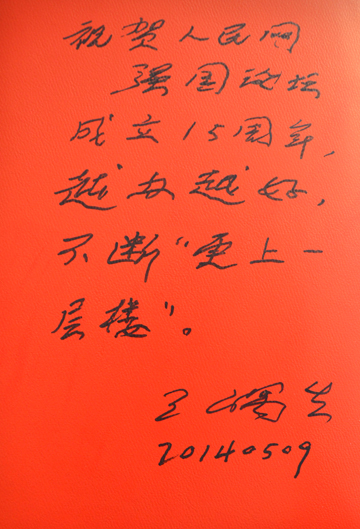 祝贺人民网
强国论坛
成立15周年，
越办越好，
不断“更上一
层楼”。
王
20140509